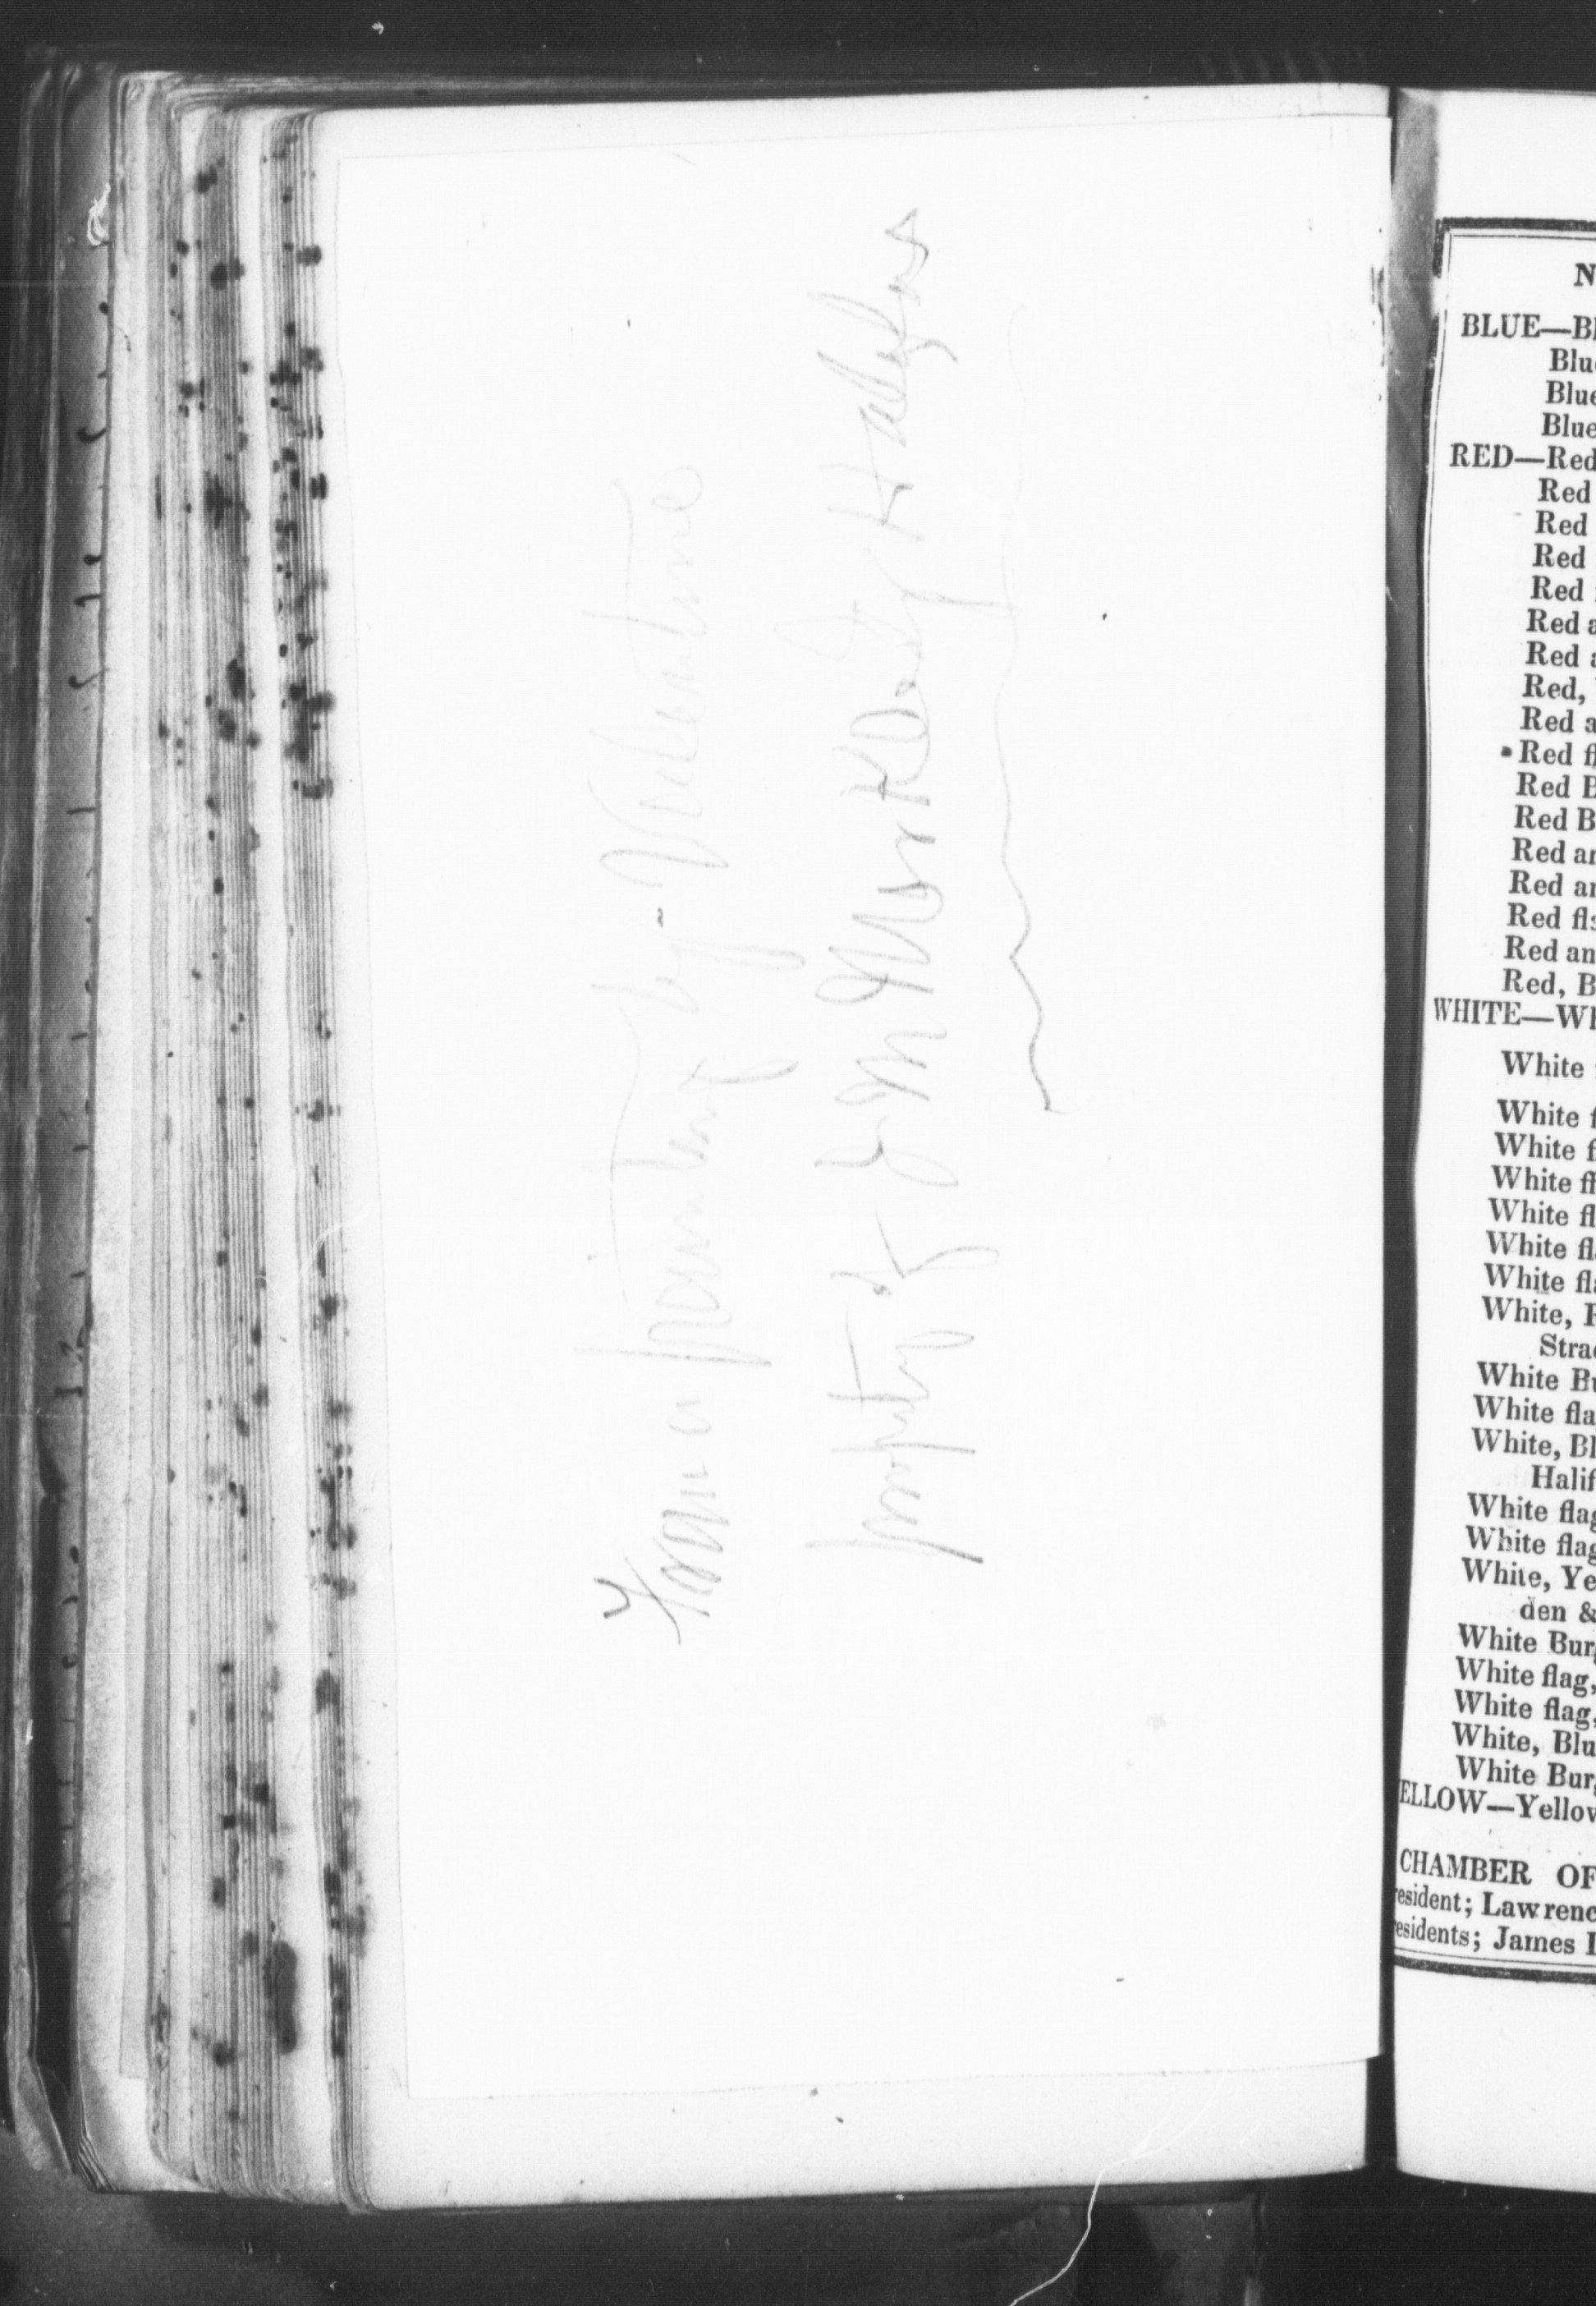 From a painting by Valentine
property of J M Inns Rosly Halifax
N
BLUE—Bl
Blu
Blue
Blue
RED—Red
Red
Red
Red
Red
Red a
Red a
Red,
Red a
Red fl
Red B
Red B
Red an
Red an
Red fla
Red an
Red, B
WHITE—Wh
White
White f
White fl
White fl
White fl
White fl
White fla
White, R
Strac
White Bu
White fla
White, Bl
Halif
White flag
White flag
White, Ye
den &
White Bur
White flag,
White flag,
White, Blu
White Burg
ELLOW—Yellow
CHAMBER OF
resident; Lawrenc
residents; James